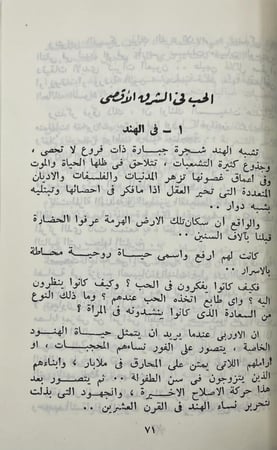 الحب فى الشرق الأقصى
١ - فى الهند
تشبه الهند شجرة جبارة ذات فروع لا تحصى ،
وجذوع كثيرة التشعبات ، تتلاحق فى ظلها الحياة والموت
وفى أعماق غصونها تزهر المدنيات والفلسفات والاديان
المتعددة التى تحير العقل اذا مافكر فى احصائها وتبتليه
بشبه دوار ٠٠
والواقع ان سكان تلك الارض الهرمة عرفوا الحضارة
قبلنا بآلاف السنين ٠٠
كانت لهم ارفع واسمى حياة روحية محاطة
بالاسرار ٠٠
فكيف كانوا يفكرون فى الحب ؟ وكيف كانوا ينظرون
اليه ؟ واى طابع اتخذه الحب عندهم ؟ وما ذلك النوع
من السعادة الذى كانوا ينشدونه فى المرأة ؟
ان الاوربى عندما يريد ان يتمثل حياة الهنود
الخاصة ، يتصور على الفور نساءهم المحجبات ، او
اراملهم اللائى يمتن على المحارق فى ملابار ، وابناءهم
الذين يتزوجون فى سن الطفولة ٠٠ ثم يتصور بعد
هذا حركة الاصلاح الاخيرة ، والجهود التى بذلت
لتحرير نساء الهند فى القرن العشرين ٠٠
٧١